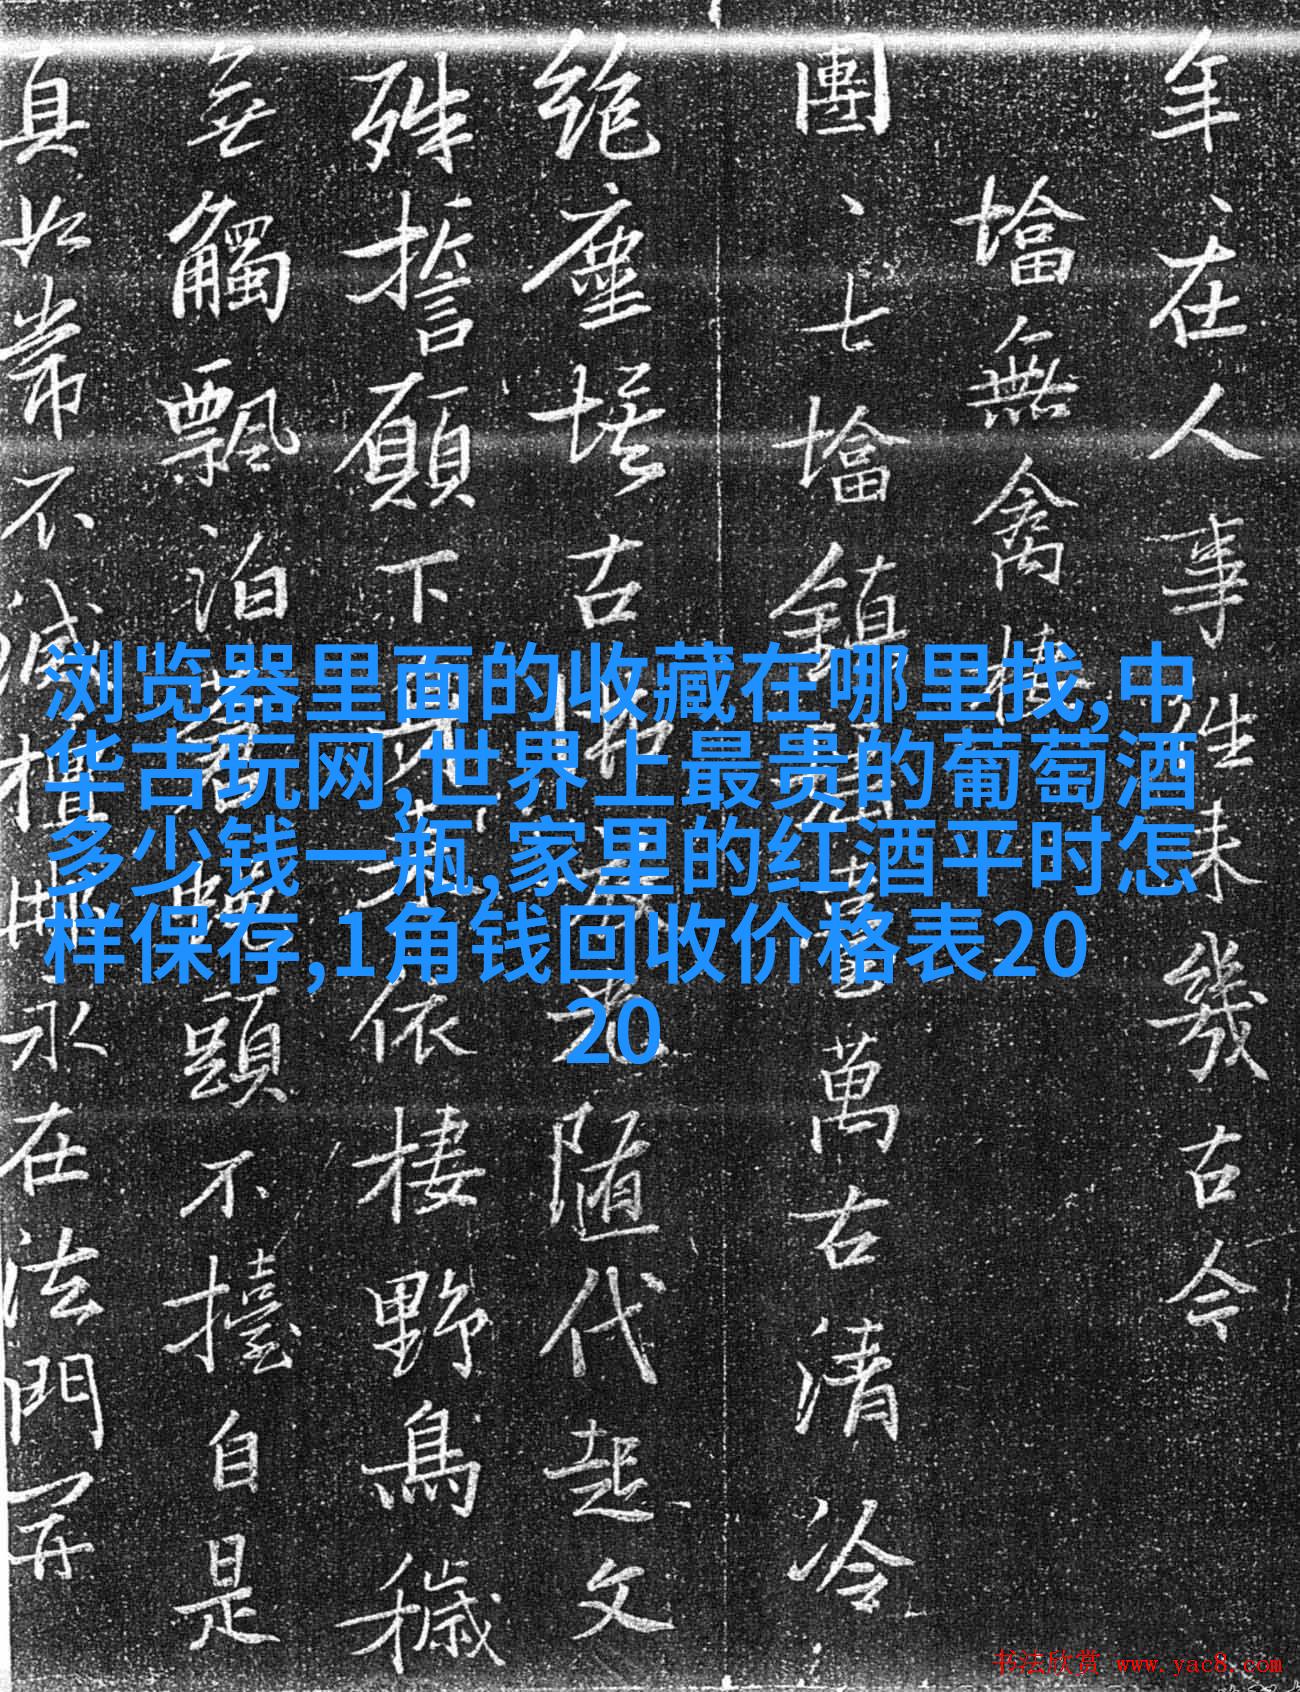 年〻在人事難未幾古今
墖無禽棲
團〻七墖鎮
萬古清冷
絶塵埃古
隨代起文
殊誓願下
依棲野鳥穢
無觸飄泊
頭不擡自是
真如常不滅
永在法門開
浏览器里面的收藏在哪里找,中
华古玩网,世界上最贵的葡萄酒
多少钱一瓶,家里的红酒平时怎
样保存,1角钱回收价格表20
20
书法欣赏 www.yac8.com